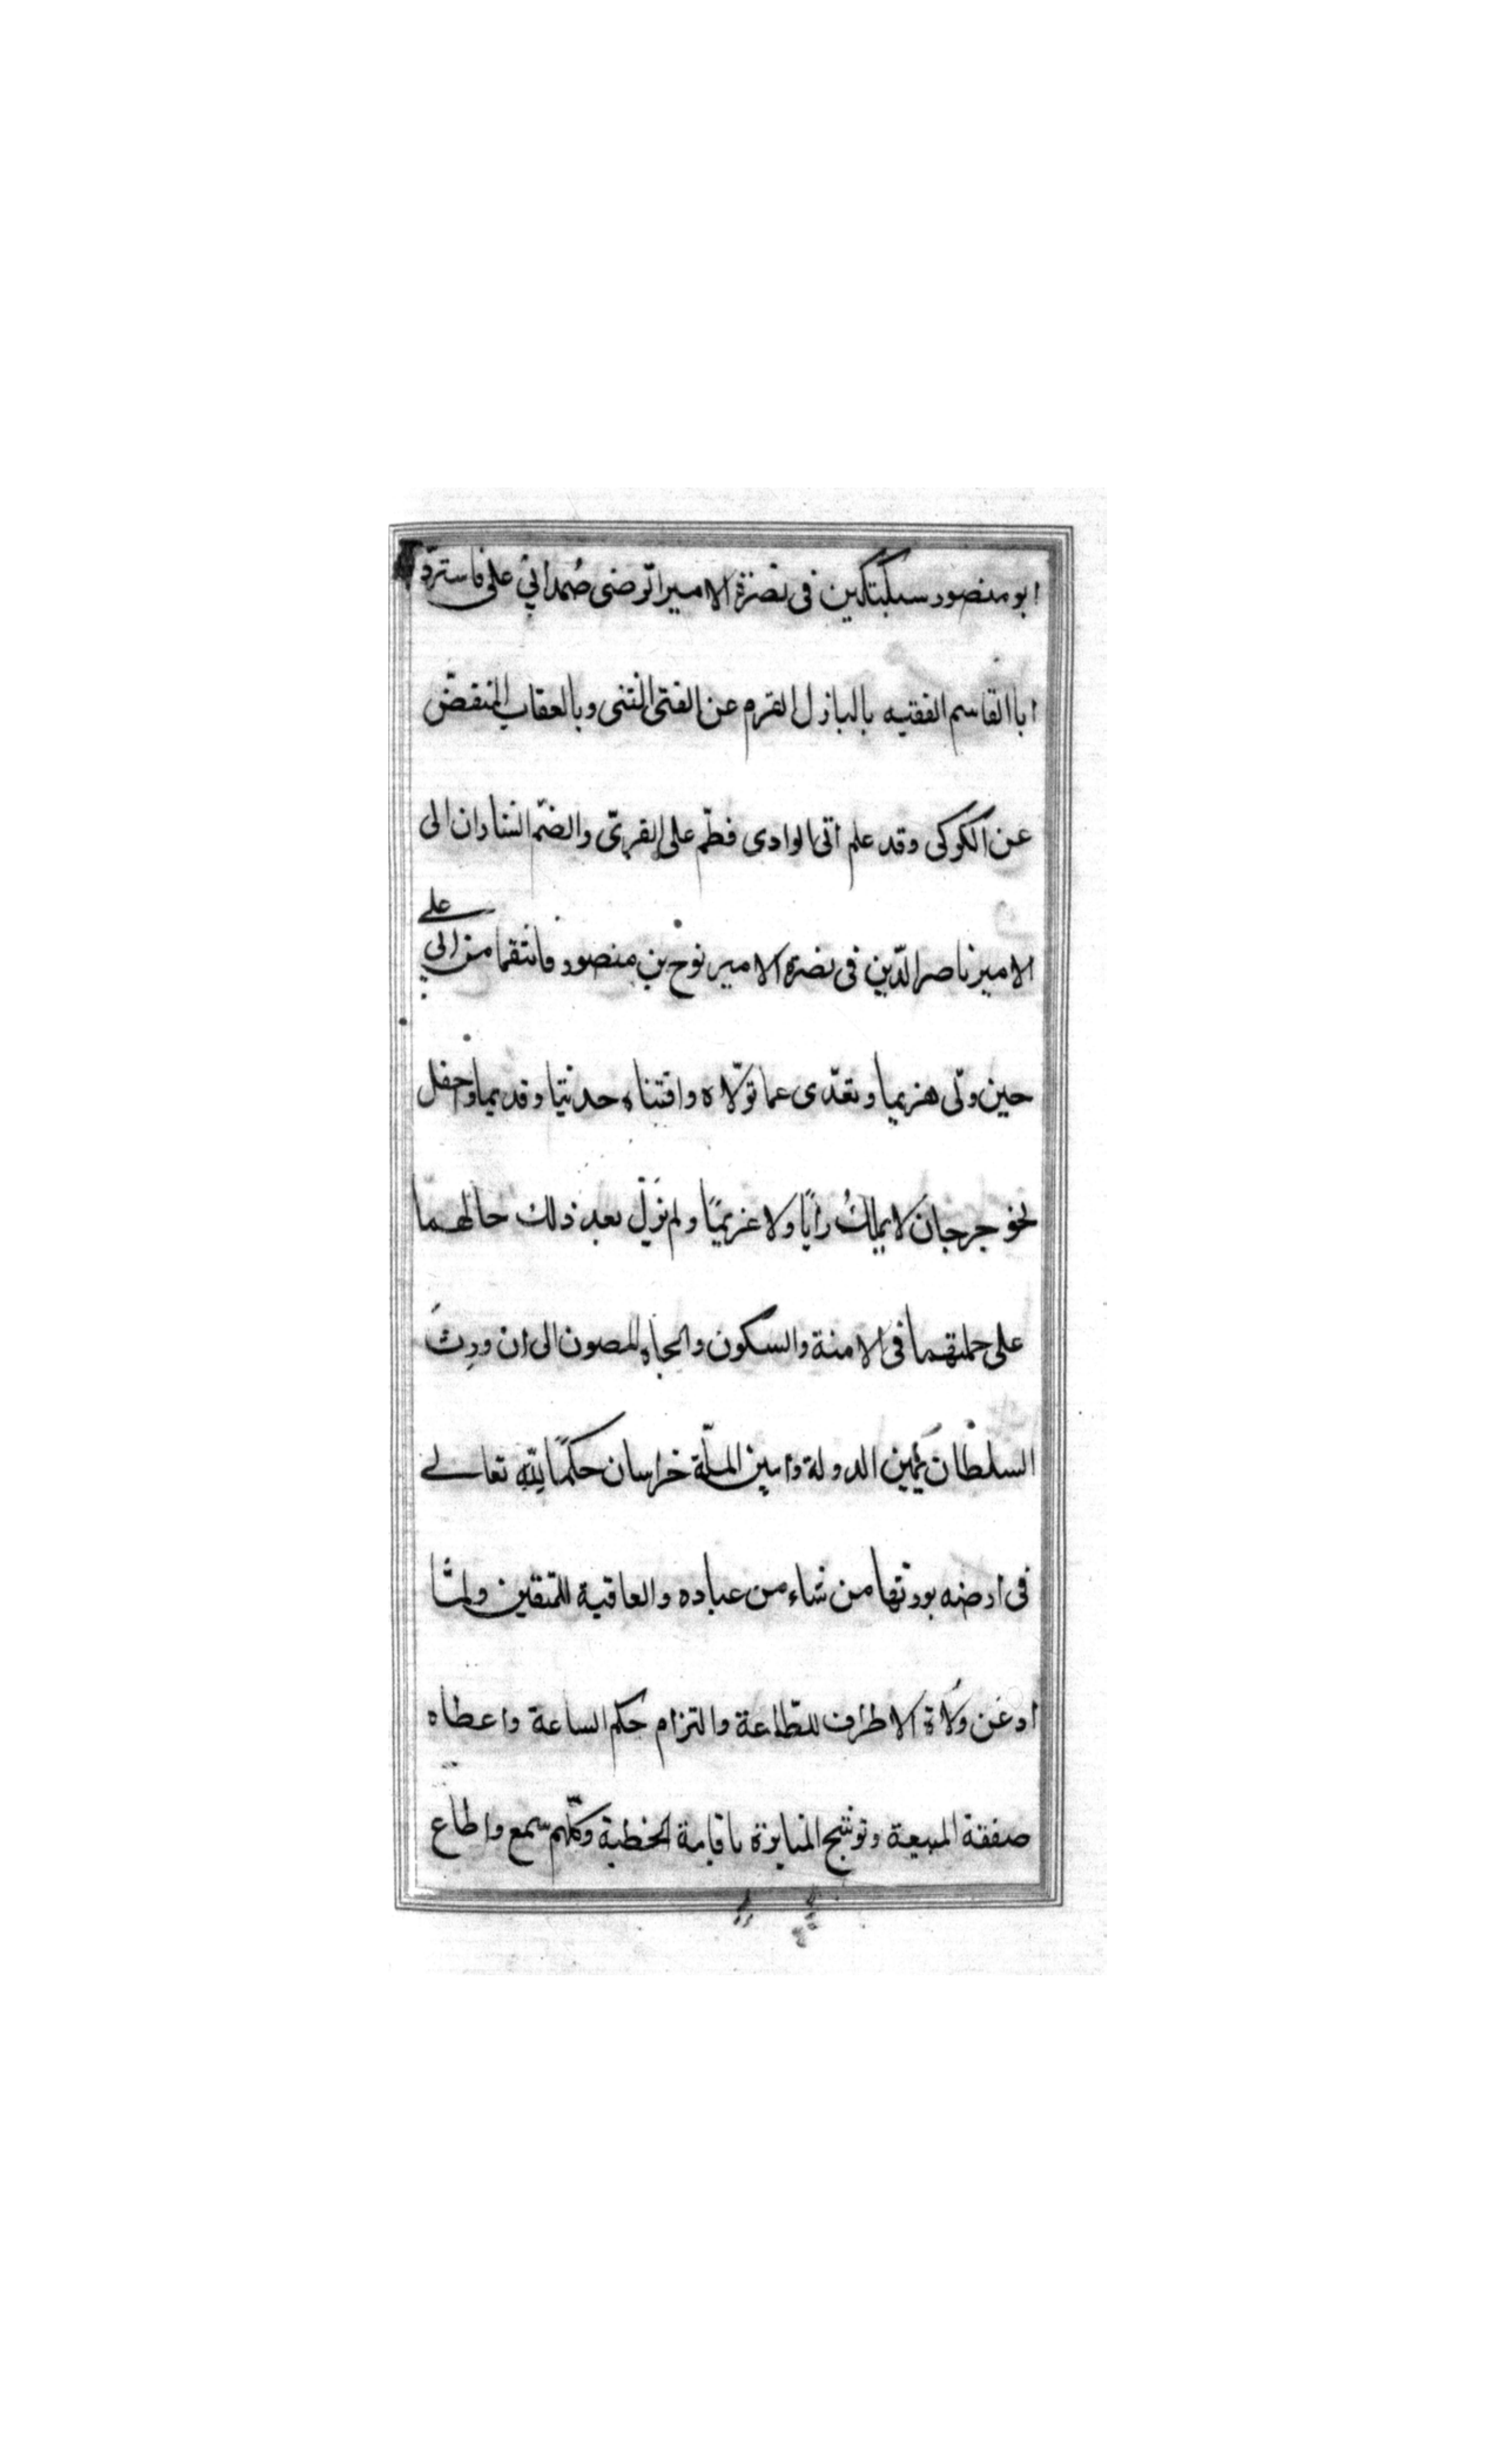 ابو منصور سبكتكين فى نصرة الامير الرضى صمد ابي على فاستردّ
ابا القاسم الفقيه بالبازل القرم عن الفتى الفتنى وبالعقاب المنقضّ
عن الكوكى وقد علم اتى الوادى فطمّ على القرىّ وانضمّ الشاران الى
الامير ناصر الدّين فى نصرة الامير نوح بن منصور فانتقما من ابي على
حين ولّى هزيما وتعدّى عما تولّاه واقتناه حديثا وقديما واجفل
نحو جرجان لا يملك رايًا ولا عزيمًا ولم تزل بعد ذلك حالهما
على جملتهما فى الامنة والسكون والجاه المصون الى ان ورث
السلطان يمين الدولة وامين الملّة خراسان حكمًا لله تعالى
فى ارضه يورثها من يشاء من عباده والعاقبة للمتقين ولمّا
اذعن ولاة الاطراف للطّاعة والتزام حكم الساعة واعطاه
صفقة البيعة وتوشّح المنابر باقامة الخطبة وكلّهم سمع واطاع